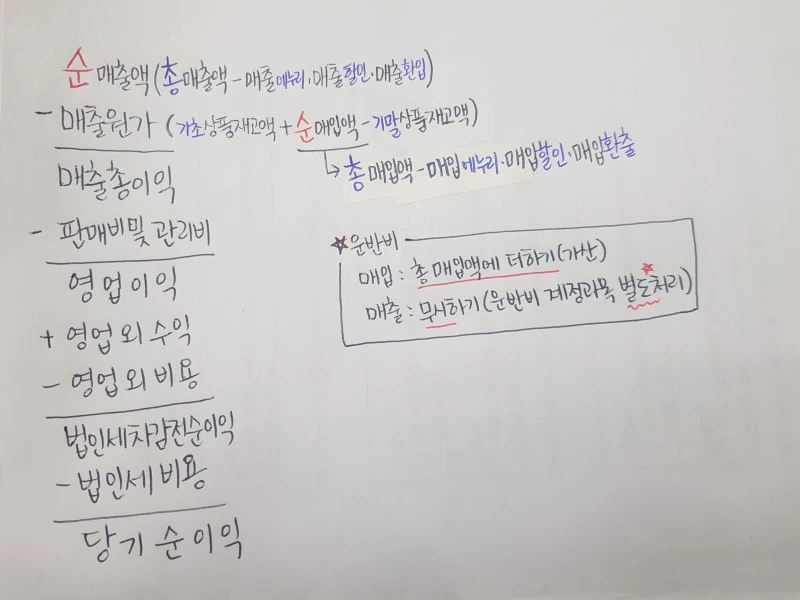 순매출액(총매출액-매출에누리·매출할인·매출환입)
- 매출원가 (기초상품재고액+순매입액-기말상품재고액)
↳ 총매입액-매입에누리·매입할인·매입환출
매출총이익
- 판매비및관리비
영업이익
+ 영업외수익
- 영업외비용
법인세차감전순이익
- 법인세비용
당기순이익
★운반비
매입 : 총매입액에 더하기(가산)
매출 : 무시하기(운반비 계정과목 별도처리)